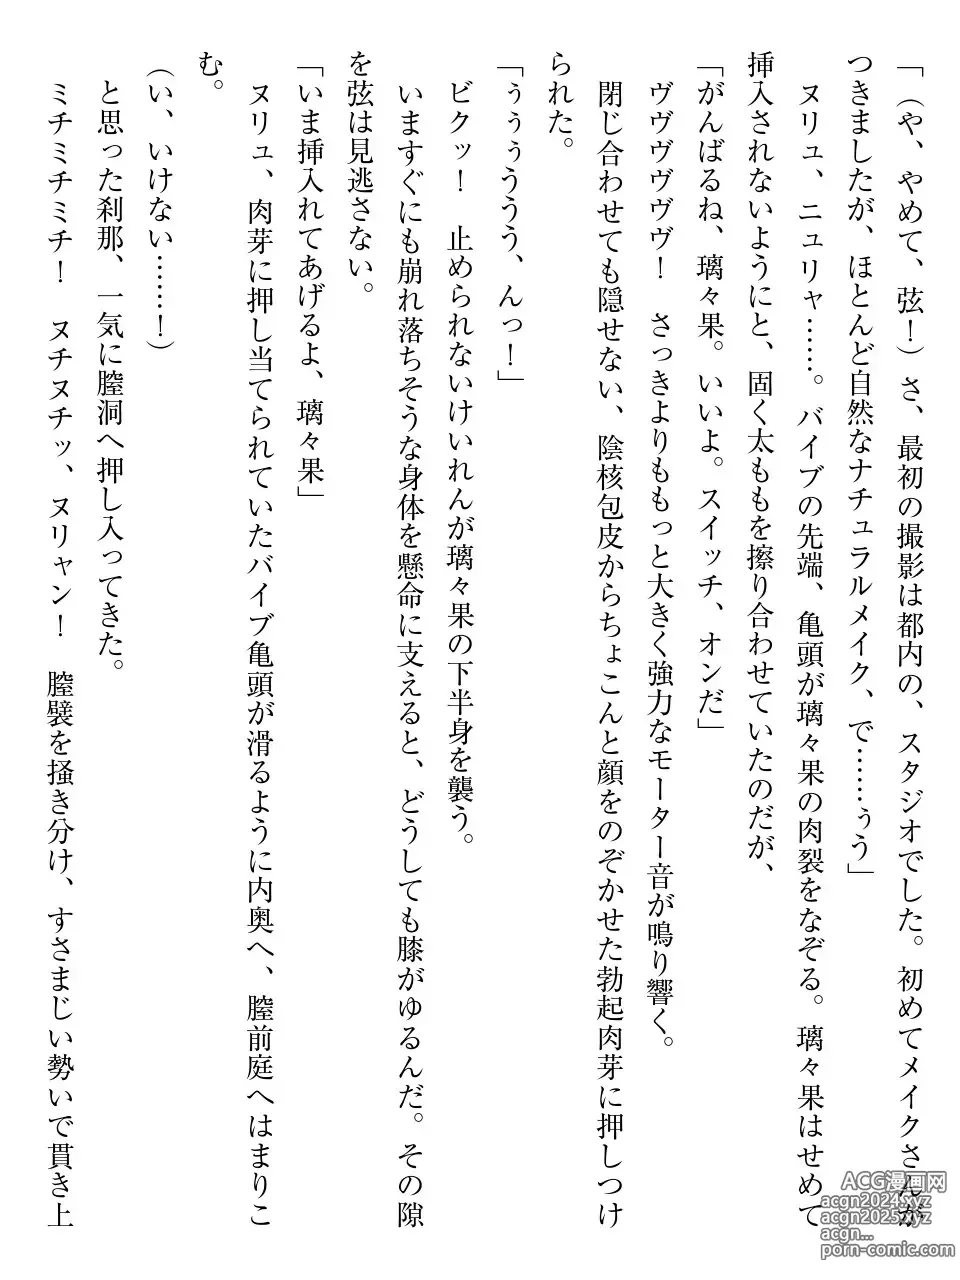 「(や、やめて、弦！)さ、最初の撮影は都内の、スタジオでした。初めてメイクさんが
つきましたが、ほとんど自然なナチュラルメイク、で……ぅう」
　ヌリュ、ニュリャ……。バイブの先端、亀頭が璃々果の肉裂をなぞる。璃々果はせめて
挿入されないようにと、固く太ももを擦り合わせていたのだが、
「がんばるね、璃々果。いいよ。スイッチ、オンだ」
　ヴヴヴヴヴヴ！　さっきよりももっと大きく強力なモーター音が鳴り響く。
　閉じ合わせても隠せない、陰核包皮からちょこんと顔をのぞかせた勃起肉芽に押しつけ
られた。
「ぅぅぅううう、んっ！」
　ビクッ！　止められないけいれんが璃々果の下半身を襲う。
　いますぐにも崩れ落ちそうな身体を懸命に支えると、どうしても膝がゆるんだ。その隙
を弦は見逃さない。
「いま挿入れてあげるよ、璃々果」
　ヌリュ、肉芽に押し当てられていたバイブ亀頭が滑るように内奥へ、膣前庭へはまりこ
む。
(い、いけない……！)
　と思った刹那、一気に膣洞へ押し入ってきた。
　ミチミチミチ！　ヌチヌチッ、ヌリャン！　膣襞を掻き分け、すさまじい勢いで貫き上
ACG漫画网
acgn2024.xyz
acgn2025.xyz
acgn...
porn-comic.com